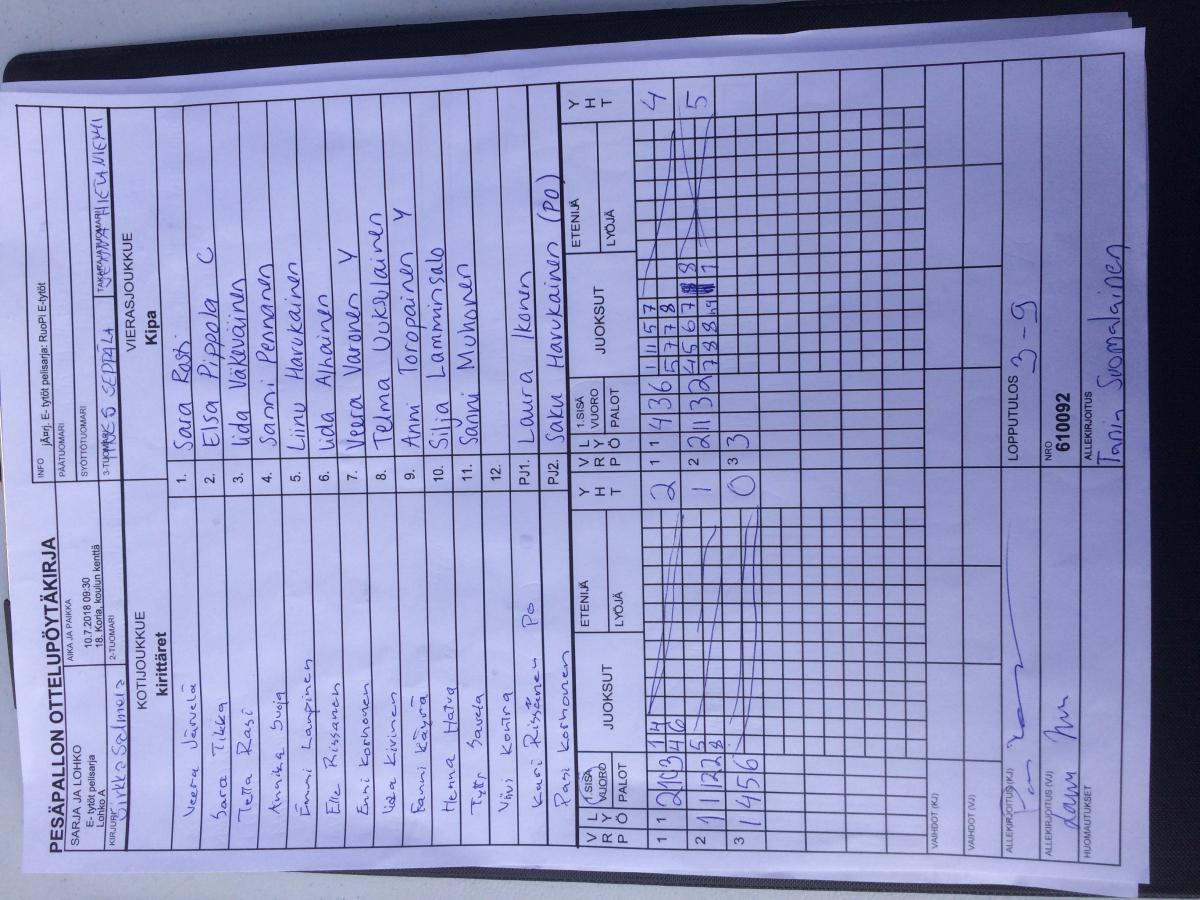 PESÄPALLON OTTELUPÖYTÄKIRJA
SARJA JA LOHKO
E- tytöt pelisarja
Lohko A
AIKA JA PAIKKA
10.7.2018 09:30
18. Koria, koulun kenttä
INFO jÄ¤rj. E- tytöt pelisarja: RuoPi E-tytöt
PÄÄTUOMARI
SYÖTTÖTUOMARI
KIRJURI Sirkka Salmela
2-TUOMARI
3-TUOMARI INES SEPPÄLÄ
TAKARAJATUOMARI JENNA HIETANIEMI
KOTIJOUKKUE
kirittäret
VIERASJOUKKUE
Kipa
Veera Järvelä 1. Sara Rasi
Sara Tikka 2. Elsa Pippola C
Tetta Rasi 3. Iida Väkeväinen
Annika Suoja 4. Sanni Pennanen
Emmi Lampinen 5. Liinu Harukainen
Elle Rissanen 6. Iida Ahainen
Enni Korhonen 7. Veera Varonen Y
Kivinen 8. Telma Uuksulainen
Fanni Käyrä 9. Anni Toropainen Y
Henna Hatva 10. Silja Lamminsalo
Tytti Savela 11. Sanni Muhonen
Viivi Kontra 12.
Kari Rissanen PO PJ1. Laura Ikonen
Pasi Korhonen PJ2. Saku Harukainen (PO)
V R P L Y Ö 1.SISÄ VUORO PALOT JUOKSUT ETENIJÄ LYÖJÄ Y H T
V R P L Y Ö 1.SISÄ VUORO PALOT JUOKSUT ETENIJÄ LYÖJÄ Y H T
1 1 2 10 3 1 4 4 6 2
1 1 4 3 6 1 11 5 7 5 7 7 8 4
2 1 11 2 2 5 8 1
2 2 11 3 2 4 5 6 7 8 5
3 1 4 5 6 0
3 3
VAIHDOT (KJ)
VAIHDOT (VJ)
ALLEKIRJOITUS (KJ)
LOPPUTULOS 3-9
ALLEKIRJOITUS (VJ)
NRO
610092
HUOMAUTUKSET
ALLEKIRJOITUS
Tanin Suomalainen